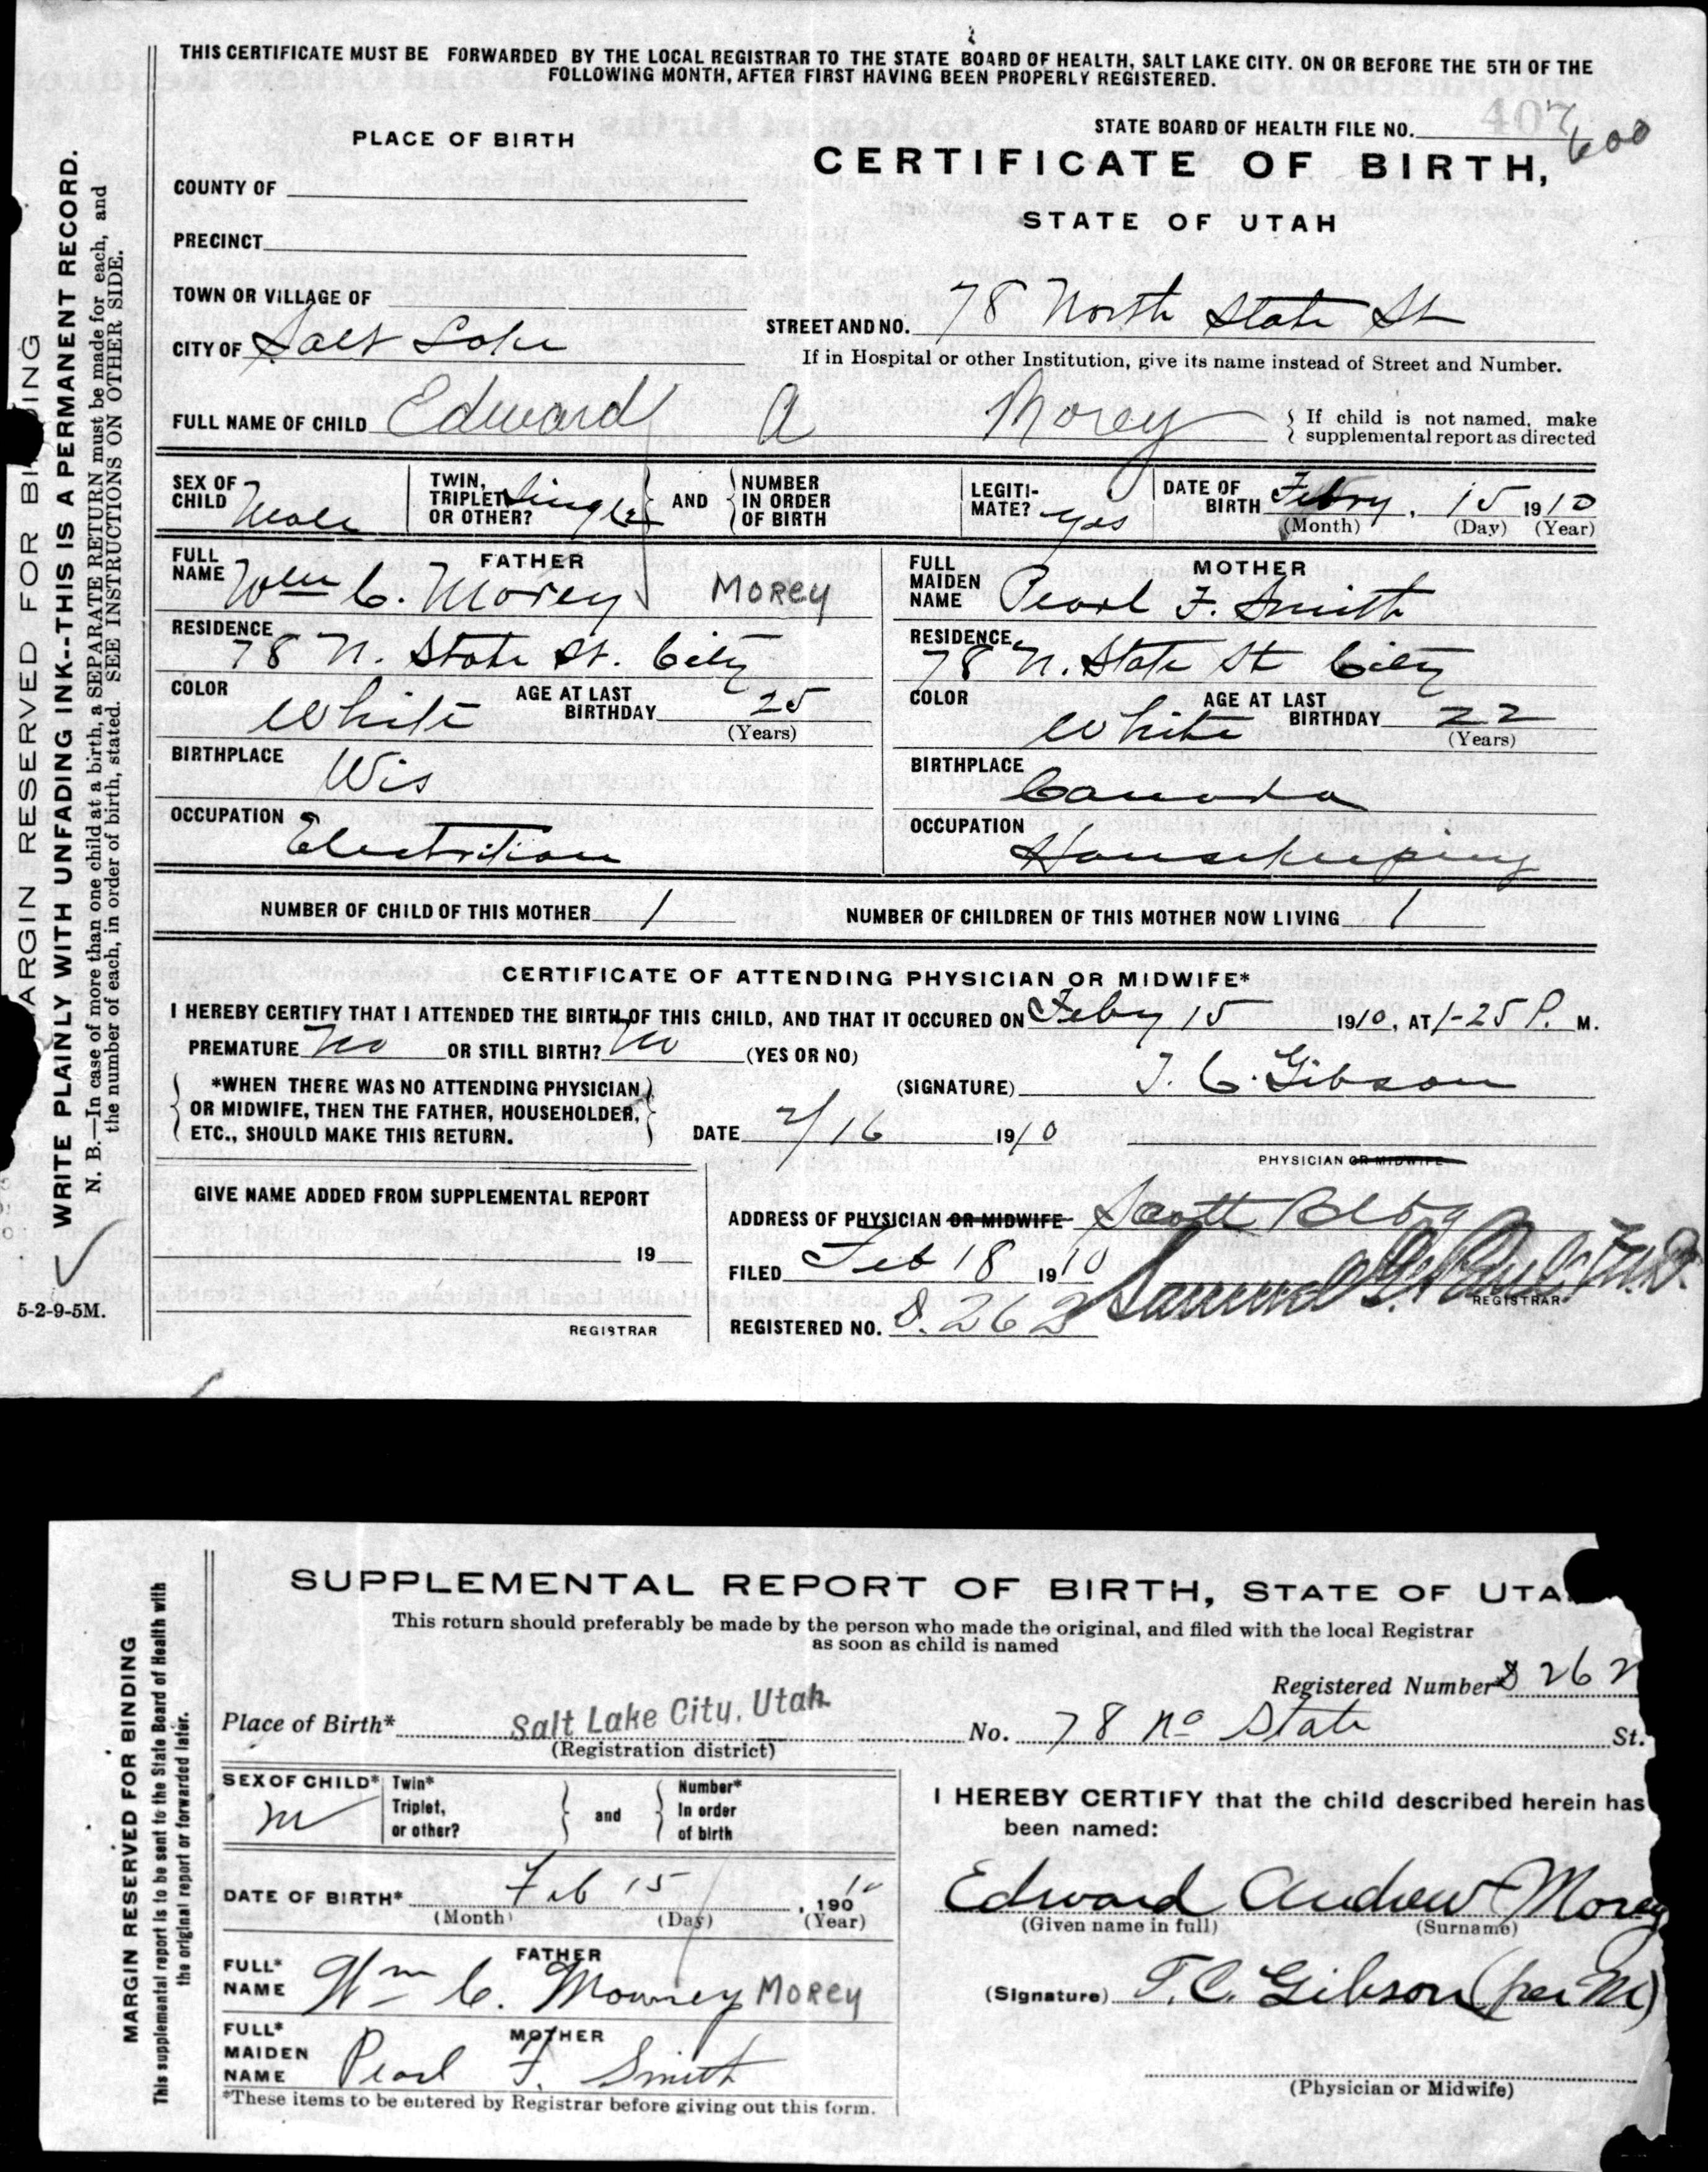 THIS CERTIFICATE MUST BE FORWARDED BY THE LOCAL REGISTRAR TO THE STATE BOARD OF HEALTH, SALT LAKE CITY. ON OR BEFORE THE 5TH OF THE
FOLLOWING MONTH, AFTER FIRST HAVING BEEN PROPERLY REGISTERED.
PLACE OF BIRTH
STATE BOARD OF HEALTH FILE NO. 407 600
CERTIFICATE OF BIRTH,
STATE OF UTAH
COUNTY OF
PRECINCT
TOWN OR VILLAGE OF
CITY OF Salt Lake
STREET AND NO. 78 North State St
If in Hospital or other Institution, give its name instead of Street and Number.
FULL NAME OF CHILD Edward A Morey
If child is not named, make
supplemental report as directed
SEX OF CHILD Male
TWIN, TRIPLET OR OTHER? Single
AND
NUMBER IN ORDER OF BIRTH
LEGITIMATE? yes
DATE OF BIRTH Febry. 15 1910
(Month) (Day) (Year)
FATHER
FULL NAME Wm C. Morey MOREY
RESIDENCE 78 N. State St. City
COLOR White AGE AT LAST BIRTHDAY 25
(Years)
BIRTHPLACE Wis
OCCUPATION Electrition
MOTHER
FULL MAIDEN NAME Pearl F. Smith
RESIDENCE 78 N. State St City
COLOR White AGE AT LAST BIRTHDAY 22
(Years)
BIRTHPLACE Canada
OCCUPATION Housekeeping
NUMBER OF CHILD OF THIS MOTHER 1
NUMBER OF CHILDREN OF THIS MOTHER NOW LIVING 1
CERTIFICATE OF ATTENDING PHYSICIAN OR MIDWIFE*
I HEREBY CERTIFY THAT I ATTENDED THE BIRTH OF THIS CHILD, AND THAT IT OCCURED ON Feby 15 1910, AT 1-25 P. M.
PREMATURE No OR STILL BIRTH? No (YES OR NO)
*WHEN THERE WAS NO ATTENDING PHYSICIAN
OR MIDWIFE, THEN THE FATHER, HOUSEHOLDER,
ETC., SHOULD MAKE THIS RETURN.
(SIGNATURE) T. C. Gibson
DATE 2/16 1910
PHYSICIAN OR MIDWIFE
GIVE NAME ADDED FROM SUPPLEMENTAL REPORT
19
REGISTRAR
ADDRESS OF PHYSICIAN OR MIDWIFE Scott Bldg
FILED Feb 18 1910
Samuel G. Paul M.D.
REGISTRAR
REGISTERED NO. S. 262
MARGIN RESERVED FOR BINDING
WRITE PLAINLY WITH UNFADING INK--THIS IS A PERMANENT RECORD.
N. B.—In case of more than one child at a birth, a SEPARATE RETURN must be made for each, and
the number of each, in order of birth, stated. SEE INSTRUCTIONS ON OTHER SIDE.
5-2-9-5M.
SUPPLEMENTAL REPORT OF BIRTH, STATE OF UTA
This return should preferably be made by the person who made the original, and filed with the local Registrar
as soon as child is named
Registered Number* S 262
Place of Birth* Salt Lake City, Utah No. 78 No State St.
(Registration district)
SEX OF CHILD* M
Twin* Triplet, or other?
and
Number* In order of birth
DATE OF BIRTH* Feb 15, 190 10
(Month) (Day) (Year)
FATHER
FULL* NAME Wm C. Mowrey MOREY
MOTHER
FULL* MAIDEN NAME Pearl F. Smith
*These items to be entered by Registrar before giving out this form.
I HEREBY CERTIFY that the child described herein has
been named:
Edward Andrew Morey
(Given name in full) (Surname)
(Signature) T.C. Gibson (per M)
(Physician or Midwife)
MARGIN RESERVED FOR BINDING
This supplemental report is to be sent to the State Board of Health with
the original report or forwarded later.